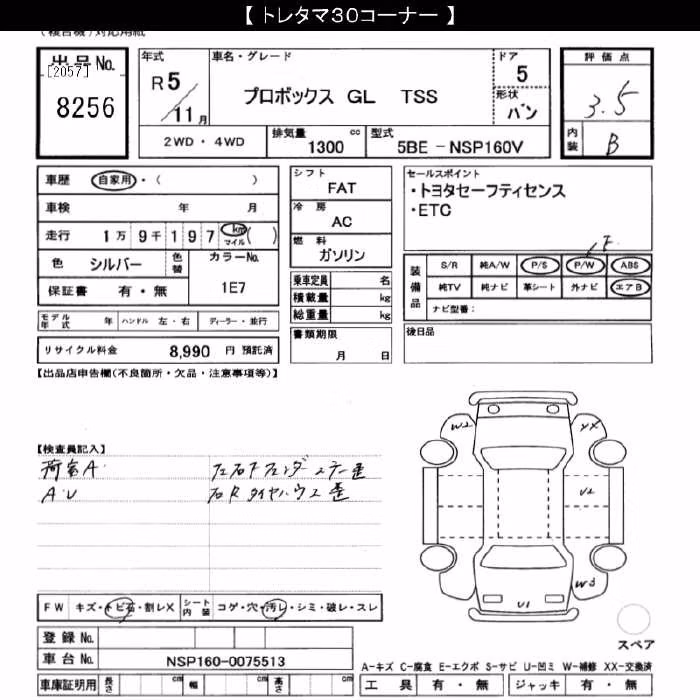 【 トレタマ３０コーナー 】
(複合機)対応用紙
出品 No.
[2057]
8256
年式
R 5
11 月
車名・グレード
プロボックス GL TSS
ドア
5
形状
バン
評価点
3.5
内装
B
2WD・4WD
排気量
1300 cc
型式
5BE - NSP160V
車歴 自家用・( )
車検 年 月
走行 1万 9千 1 9 7 km マイル ( )
色 シルバー 色替 カラーNo.
1E7
保証書 有・無
モデル年式 年 ハンドル 左・右 ディーラー・並行
リサイクル料金 8,990 円 預託済
シフト
FAT
冷房
AC
燃料
ガソリン
乗車定員 名
積載量 kg
総重量 kg
書類期限
月 日
セールスポイント
・トヨタセーフティセンス
・ETC
F.
装備品
S/R 純A/W P/S P/W ABS
純TV 純ナビ 革シート 外ナビ エアB
ナビ型番：
後日品
【出品店申告欄(不良箇所・欠品・注意事項等)】
【検査員記入】
荷室A 左右Fフェンダーステー歪
A・U 右Rタイヤハウス歪
W2
XX
U2
W3
U1
FW キズ・トビ石・割レX シート内装 コゲ・穴・汚レ・シミ・破レ・スレ
登録 No.
車台 No. NSP160-0075513
車庫証明用 長さ cm 幅 cm 高さ cm
スペア
A-キズ C-腐食 E-エクボ S-サビ U-凹ミ W-補修 XX-交換済
工具 有・無 ジャッキ 有・無